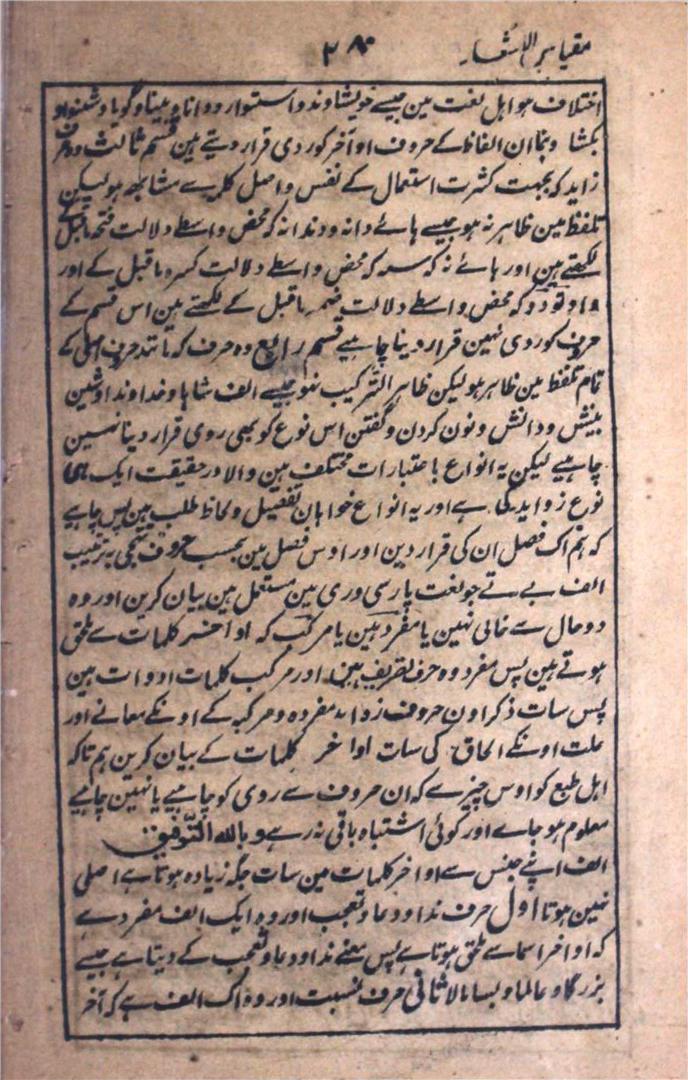 مقیاس الاشعار ۲۸
اختلاف ہو اہل لغت مین جیسے خویشاوند و استوار و دانا و بینا و گویا و شنوا و
بکشا و بنما ان الفاظ کے حروف اواخر کو ردی قرار دیتے ہین قسم ثالث وہ حرف
زاید کہ بجہت کثرت استعمال کے نفس و اصل کلمہ سے مشابھ ہو لیکن
تلفظ مین ظاہر نہ ہو جیسے ہائے دانہ و دندانہ کہ محض واسطے دلالت فتحہ ماقبل کے
لکھتے ہین اور ہائے نہ کہ سہ کہ محض واسطے دلالت کسرہ ماقبل کے اور
واو تو دو کہ محض واسطے دلالت ضمہ ماقبل کے لکھتے ہین اس قسم کے
حروف کو ردی نہین قرار دینا چاہیے قسم رابع وہ حرف کہ مانند حرف اصلی کے
تمام تلفظ مین ظاہر ہو لیکن ظاہر الترکیب نہو جیسے الف شاہا و خداوندا و شین
بینش و دانش و نون کردن و گفتن اس نوع کو بھی روی قرار دینا نہین
چاہیے لیکن یہ انواع باعتبارات مختلف ہین والا در حقیقت ایک ہی
نوع زواید کی ہے اور یہ انواع خواہان تفصیل و لحاظ طلب ہین پس چاہیے
کہ ہم اک فصل ان کی قرار دین اور اوس فصل مین بحسب حروف تہجی بہ ترتیب
الف بے تے جو لغت پارسی دری مین مستعمل ہین بیان کرین اور وہ
دو حال سے خالی نہین یا مفرد ہین یا مرکب کہ اواخر کلمات سے ملحق
ہوتے ہین پس مفرد وہ حرف تصریف ہین اور مرکب کلمات ادوات ہین
پس سات ذکر اون حروف زواید مفردہ و مرکبہ کے اونکے معانے اور
علت اونکے الحاق کی سات اواخر کلمات کے بیان کرین ہم تاکہ
اہل طبع کو اوس چیز سے کہ ان حروف سے روی کو چاہیے یا نہین چاہیے
معلوم ہو جاے اور کوئی اشتباہ باقی نہ رہے و بالله التّوفیق
الف اپنے جنس سے اواخر کلمات مین سات جگہ زیادہ ہوتا ہے اصلی
نہین ہوتا اول حرف ندا و دعا و تعجب اور وہ ایک الف مفرد ہے
کہ اواخر اسما سے ملحق ہوتا ہے پس معنے ندا و دعا و تعجب کے دیتا ہے جیسے
بزرگا و عالما و بسا مالا ثانی حرف نسبت اور وہ اک الف ہے کہ آخر